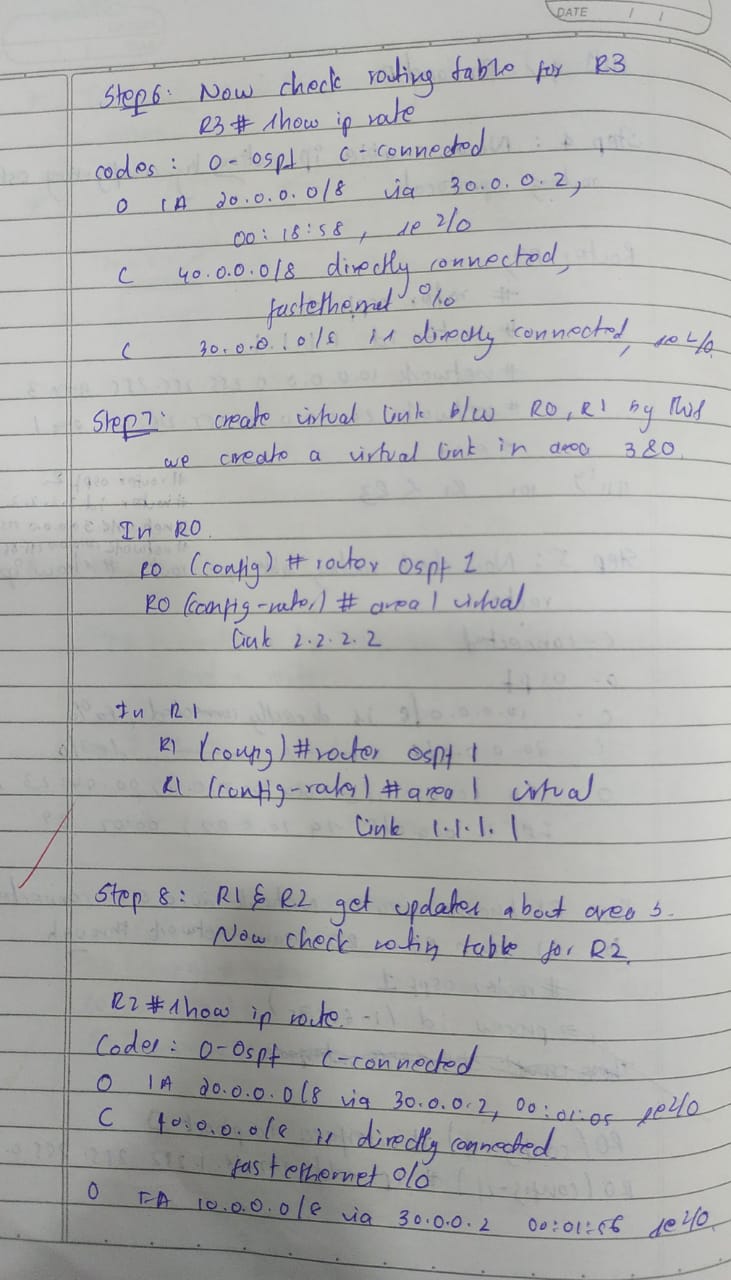 DATE / /
Step 6: Now check routing table for R3
R3 # show ip rate
codes: O-ospf C-connected
O IA 20.0.0.0/8 via 30.0.0.2,
00:18:58, se 2/0
C 40.0.0.0/8 directly connected,
fastethernet 0/0
C 30.0.0.0/8 is directly connected, se 2/0.
Step 7: create virtual link b/w R0, R1 by this
we create a virtual link in area 3&0.
In R0.
R0 (config) # router ospf 1
R0 (config-router) # area 1 virtual
link 2.2.2.2
In R1
R1 (config) # router ospf 1
R1 (config-router) # area 1 virtual
link 1.1.1.1
Step 8: R1 & R2 get updates about area 3.
Now check routing table for R2.
R2 # show ip route.
Codes: O-Ospf C-connected
O IA 20.0.0.0/8 via 30.0.0.2, 00:01:05 se 2/0
C 40.0.0.0/8 is directly connected.
fastethernet 0/0
O IA 10.0.0.0/8 via 30.0.0.2 00:01:56 se 2/0.